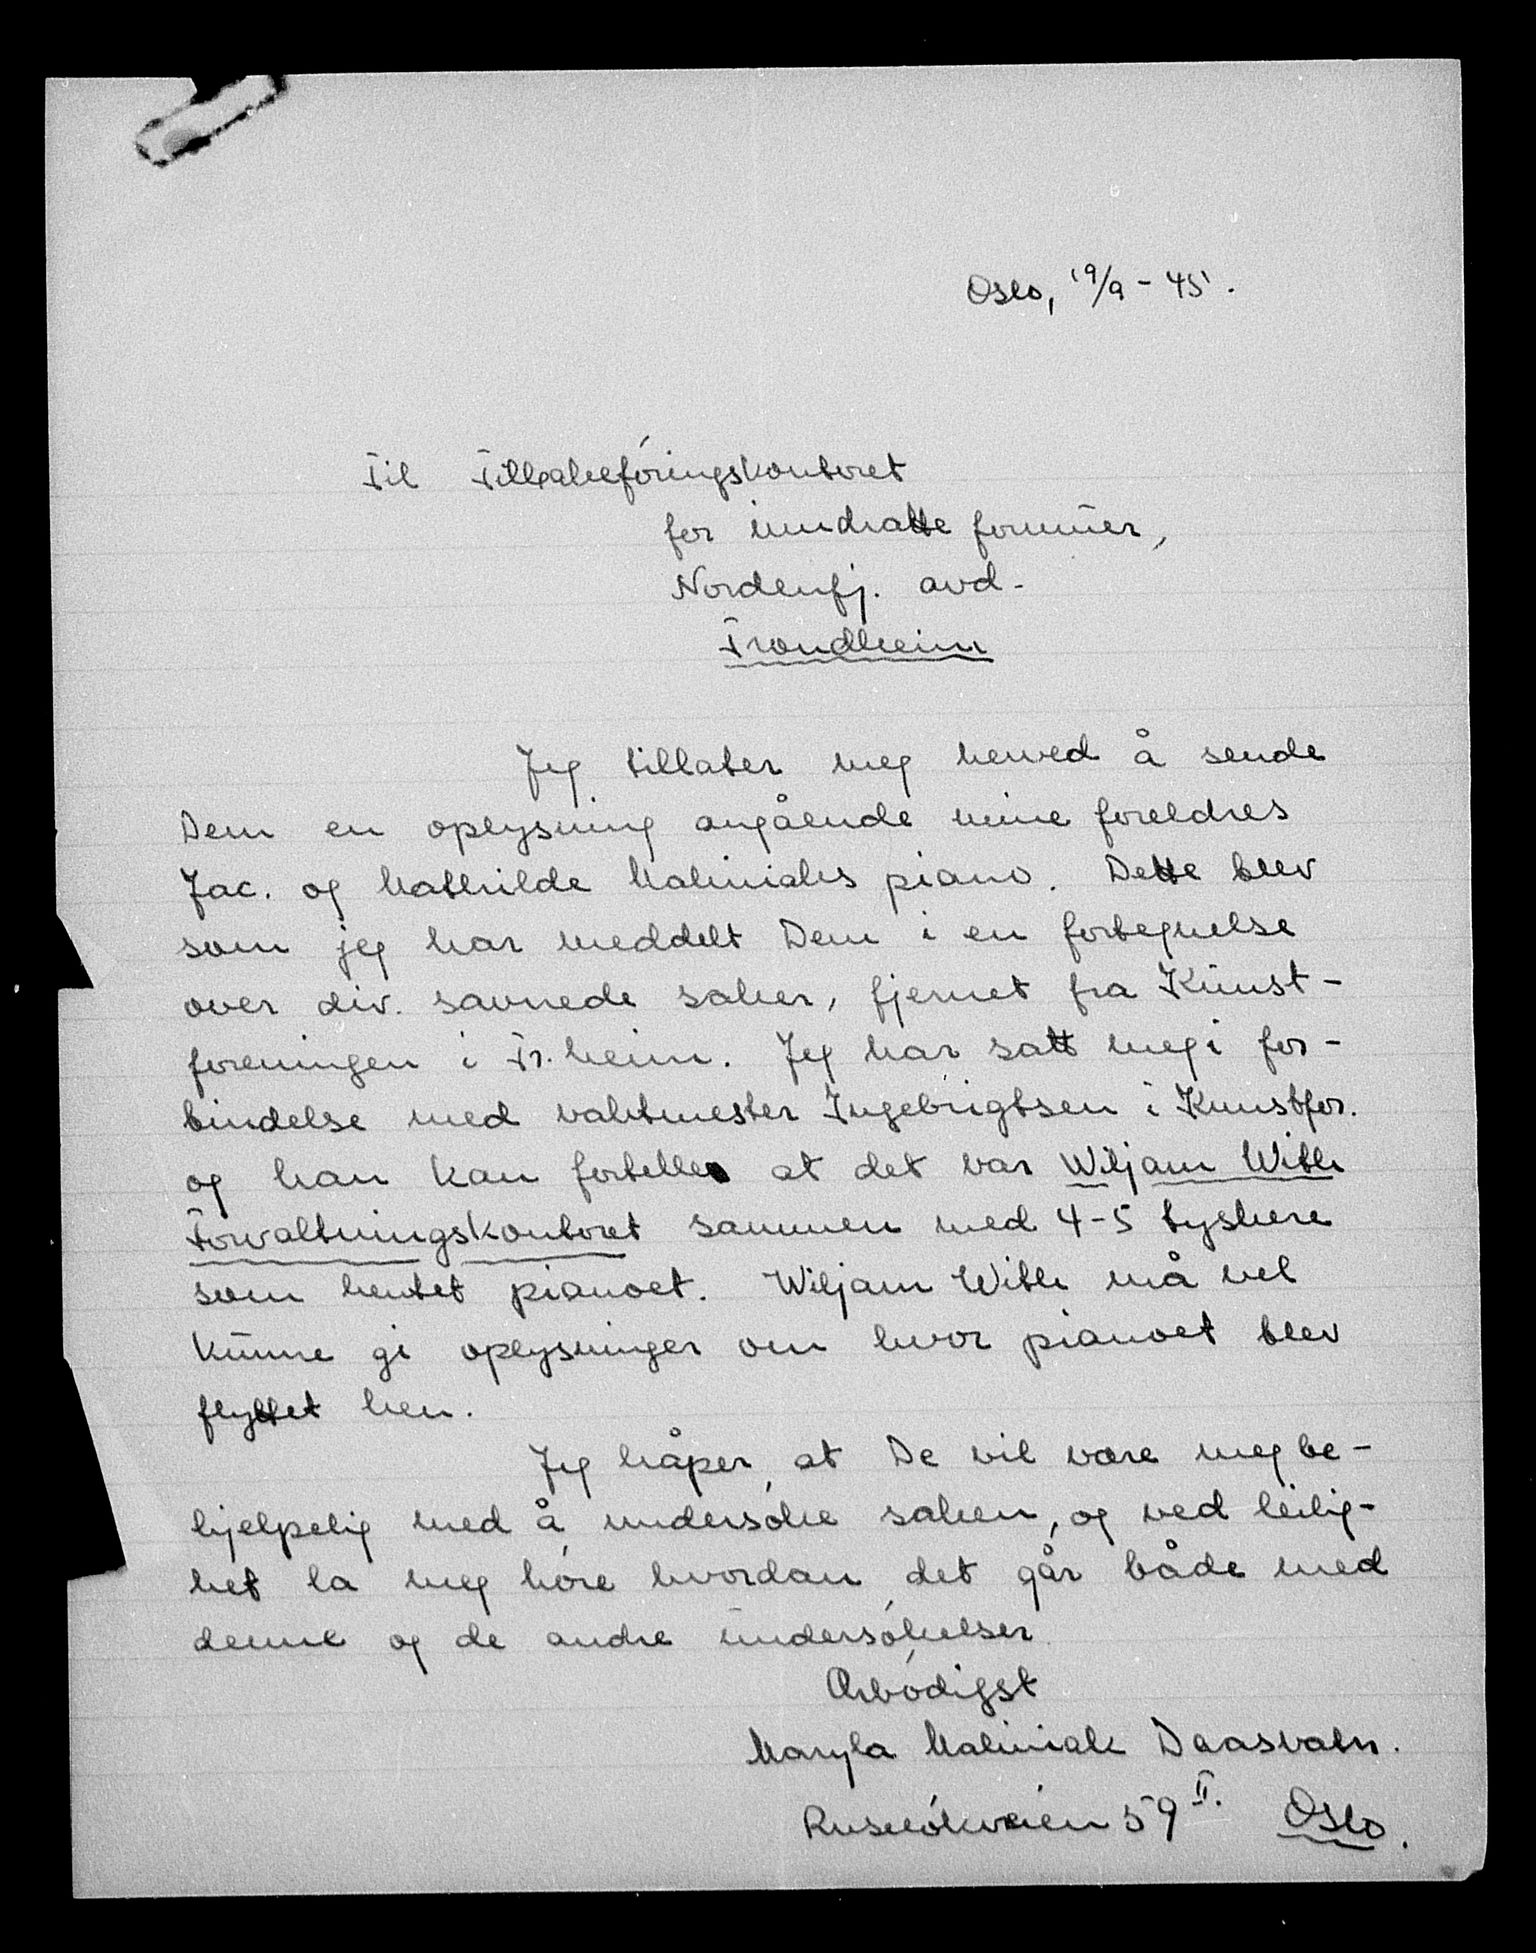 Oslo, 19/9 - 45.
Til Tilbakeføringskontoret
for inndratte formuer,
Nordenfj. avd.
Trondheim
Jeg tillater meg herved å sende
Dem en oplysning angående mine foreldres
Jac. og Mathilde Maliniaks piano. Dette blev
som jeg har meddelt Dem i en fortegnelse
over div. savnede saker, fjernet fra Kunst-
foreningen i Tr.heim. Jeg har satt meg i for-
bindelse med vaktmester Ingebrigtsen i Kunstfor.
og han kan fortelle at det var Wiljam With
Forvaltningskontoret sammen med 4-5 tyskere
som hentet pianoet. Wiljam With må vel
kunne gi oplysninger om hvor pianoet blev
flyttet hen.
Jeg håper, at De vil være meg be-
hjelpelig med å undersøke saken, og ved leilig-
het la meg høre hvordan det går både med
denne og de andre undersøkelser.
Ærbødigst
Maryla Maliniak Daasvatn.
Ruseløkveien 59 II. Oslo.